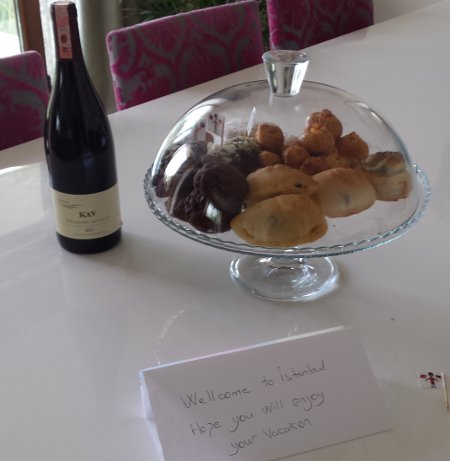 KAV
Wellcome to İstanbul
Hope you will enjoy
your Vacation